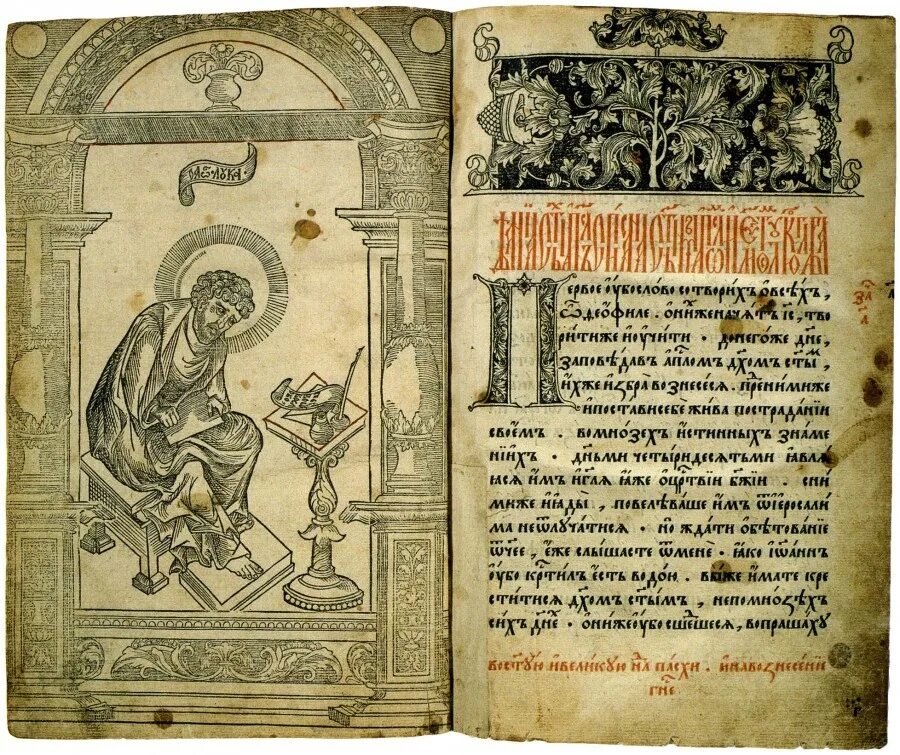 лꙋка
Первое оубо слово сотворихъ ѡ всѣхъ,
ѽ деѡфиле · ѡ нихже начѧтъ і҃с, тво
рити же и оучити · до негоже дн҃е,
заповѣдавъ ап҃лом дх҃ом ст҃ым
ихже избра вознесесѧ · пред̾ нимиже
и постави себе жива по страданїи
своемъ · во мнозех истинныхъ знаме
нїих · дньми четыридесѧтьми ꙗвлѧ
ꙗсѧ имъ и гл҃ѧ ꙗже о цр҃твїи бж҃їи · с ни
миже и ꙗды, повелѣваше имъ ѿ іеросали
ма не ѿлꙋчатисѧ · но ждати обѣтованїе
ѿч҃ее, еже слышасте ѿ мене · ꙗко іѡаннъ
оубо кр҃тил есть водою · вы же имате кре
ститисѧ дх҃омъ ст҃ымъ, не по мнозѣхъ
сихъ дн҃ехъ · они же оубо сшедшесѧ, вопрашахꙋ
за҃
а҃
в̾ ст҃ꙋю и великꙋю н҃лю пасхи · и на вознесенїе
гн҃е